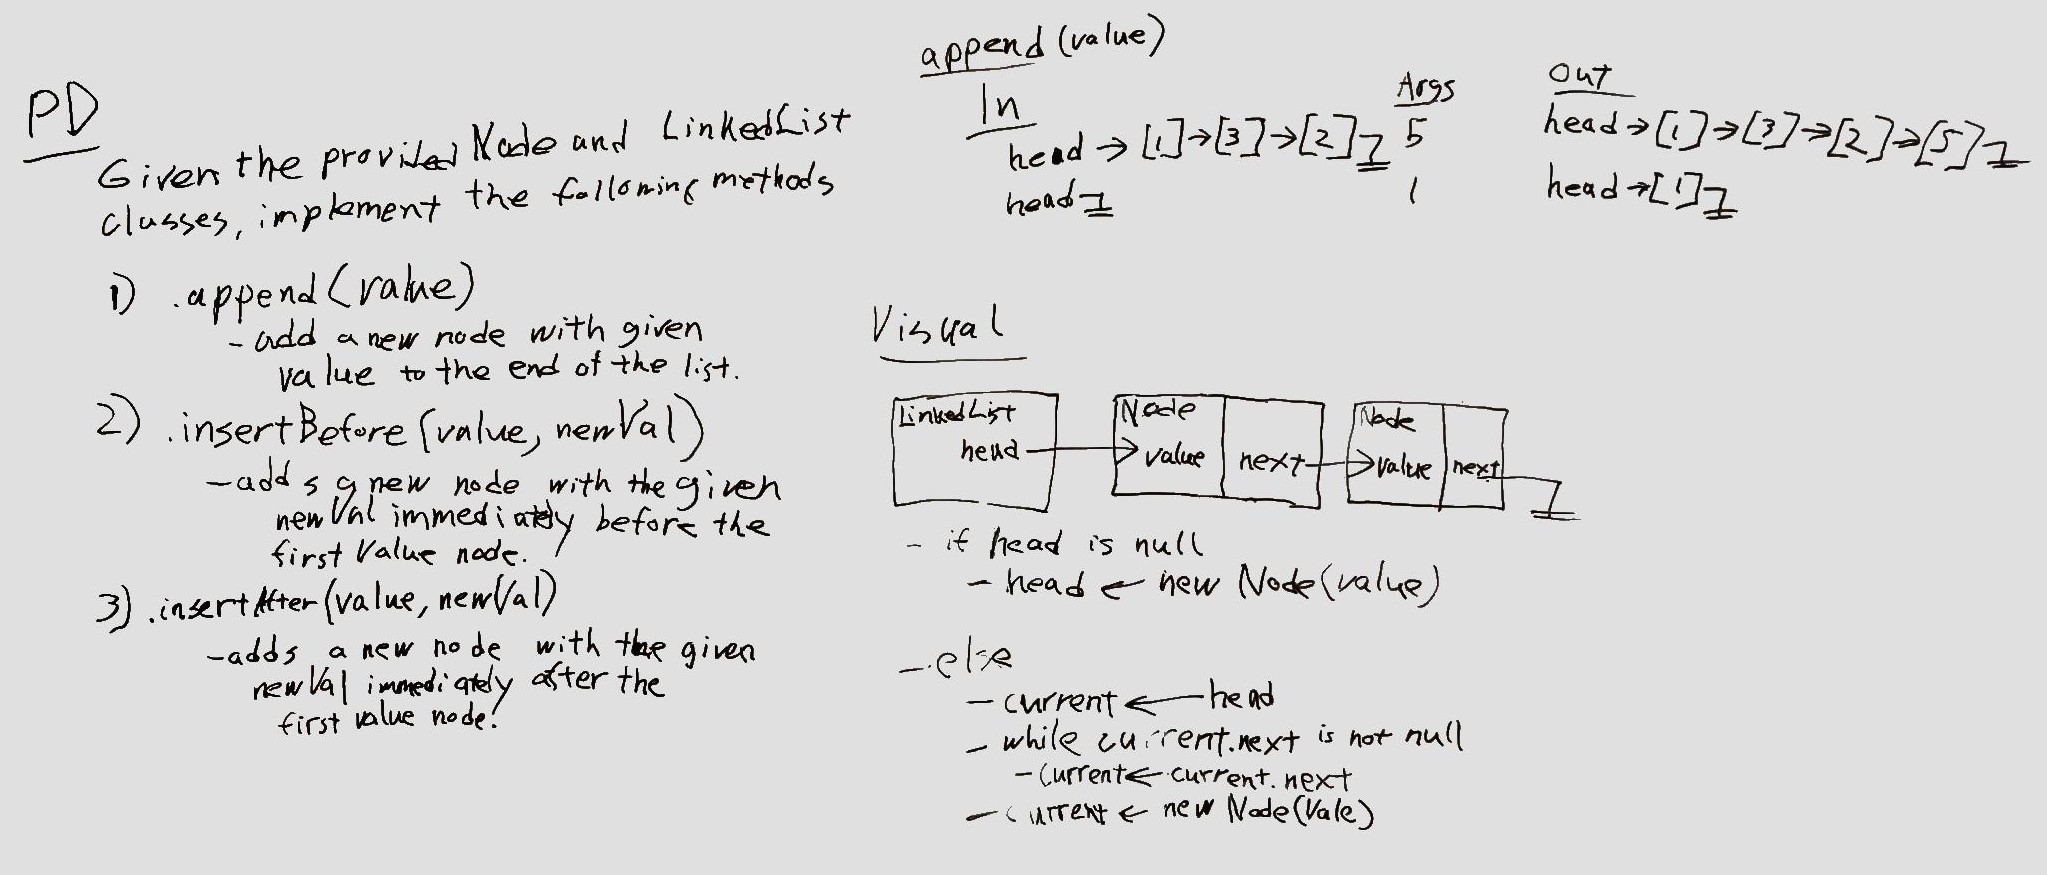 PD
Given the provided Node and LinkedList
classes, implement the following methods
1) .append(value)
- add a new node with given
value to the end of the list.
2) .insertBefore(value, newVal)
- adds a new node with the given
newVal immediately before the
first Value node.
3) .insertAfter(value, newVal)
- adds a new node with the given
newVal immediately after the
first value node.
append(value)
In Args Out
head → [1] → [3] → [2] 5 head → [1] → [3] → [2] → [5]
head 1 head → [1]
Visual
LinkedList Node Node
head value next value next
- if head is null
- head ← new Node(value)
- else
- current ← head
- while current.next is not null
- current ← current.next
- current ← new Node(Vale)